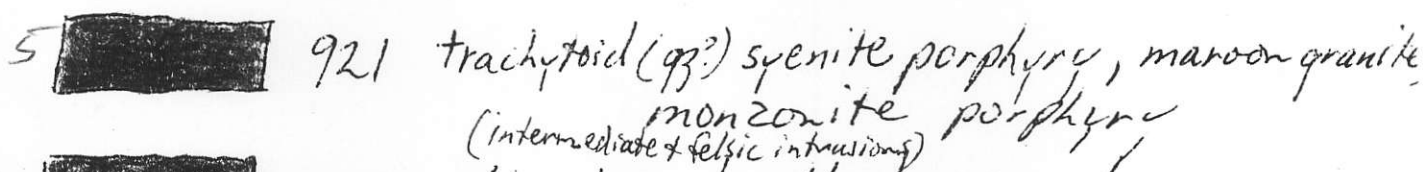 5 921 trachytoid (qz?) syenite porphyry, maroon granite,
monzonite porphyry
(intermediate & felsic intrusions)